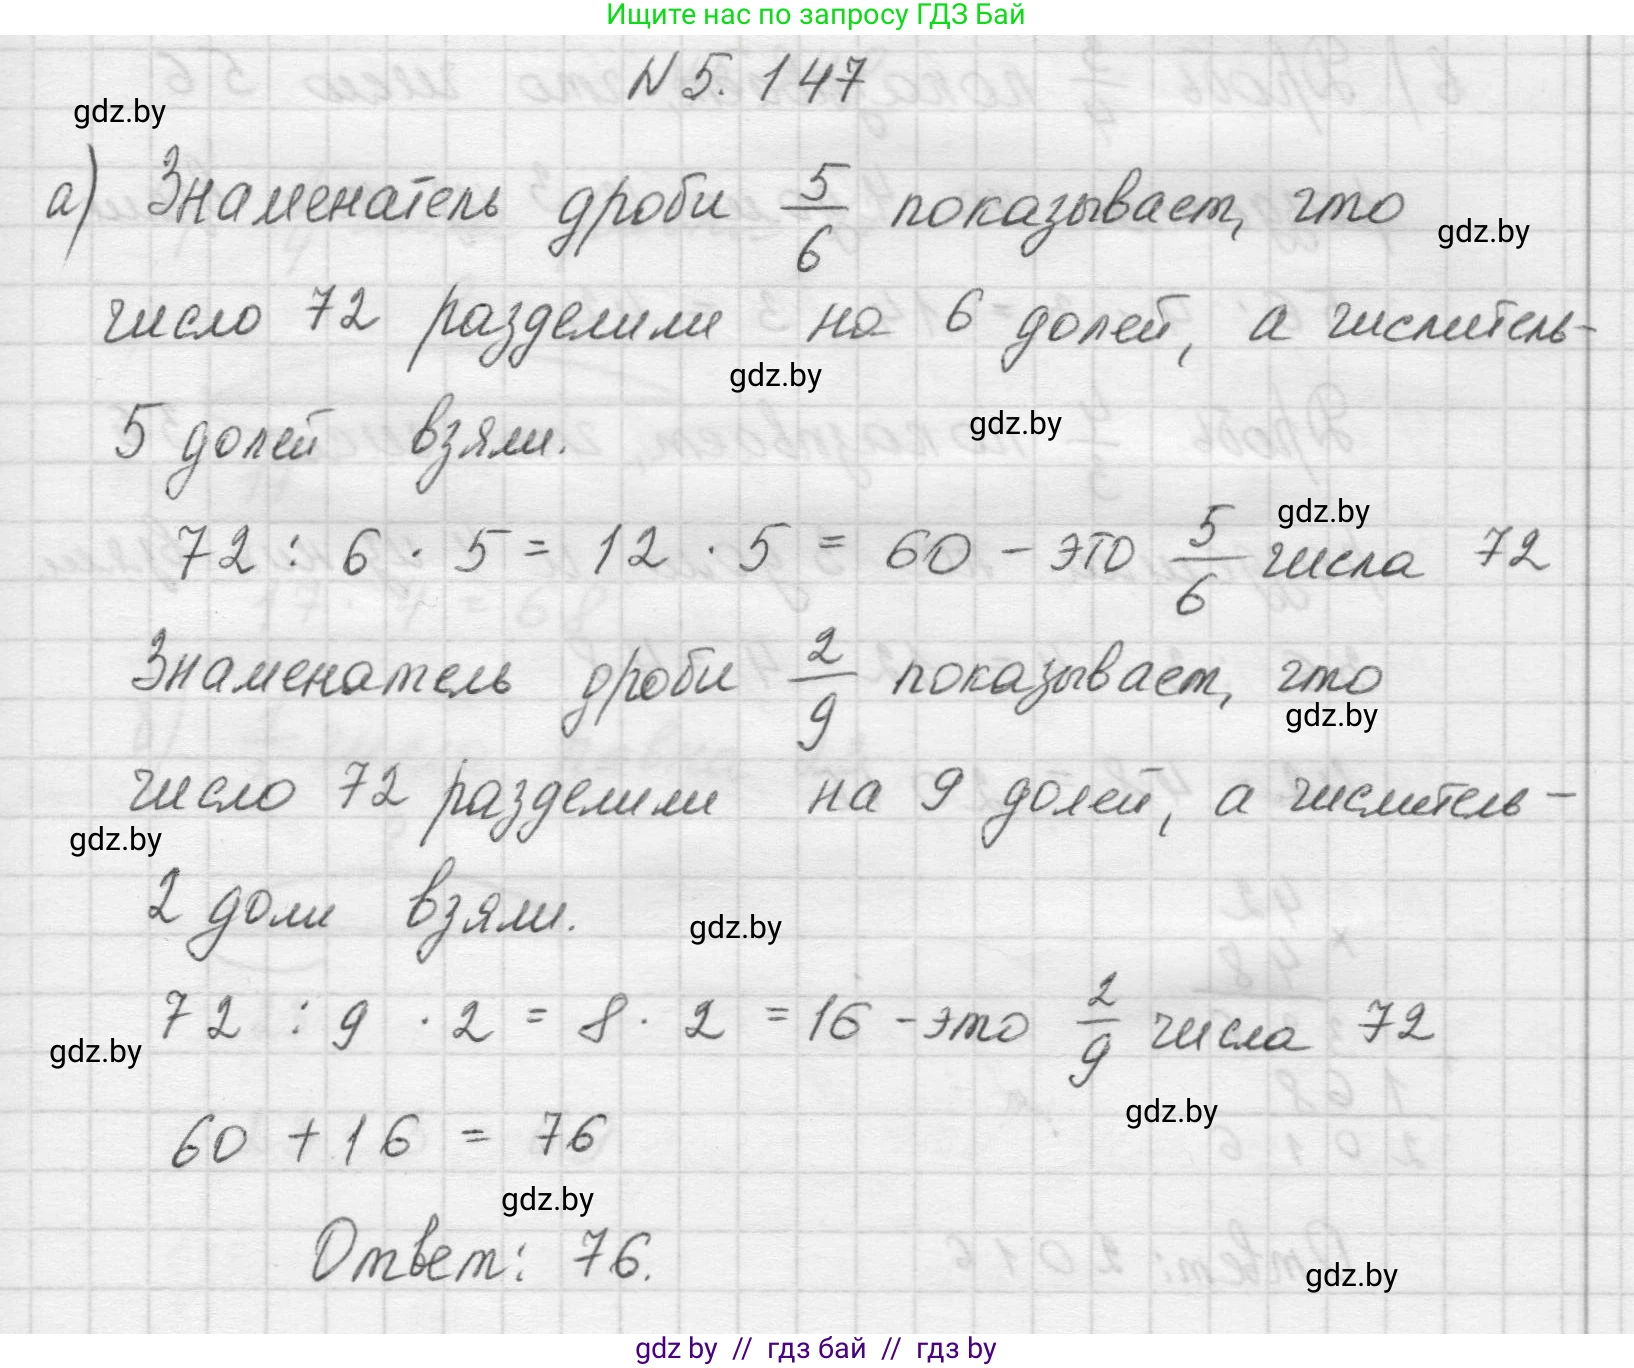 Ищите нас по запросу ГДЗ Бай
N 5. 147
gdz.by
а) Знаменатель дроби 5/6 показывает, что
gdz.by
число 72 разделили на 6 долей, а числитель-
gdz.by
gdz.by
5 долей взяли.
gdz.by
72 : 6 · 5 = 12 · 5 = 60 - это 5/6 числа 72
Знаменатель дроби 2/9 показывает, что
gdz.by
число 72 разделили на 9 долей, а числитель -
gdz.by
2 доли взяли.
gdz.by
72 : 9 · 2 = 8 · 2 = 16 - это 2/9 числа 72
gdz.by
gdz.by
60 + 16 = 76
gdz.by
Ответ: 76.
gdz.by
gdz by // гдз бай // гдз by